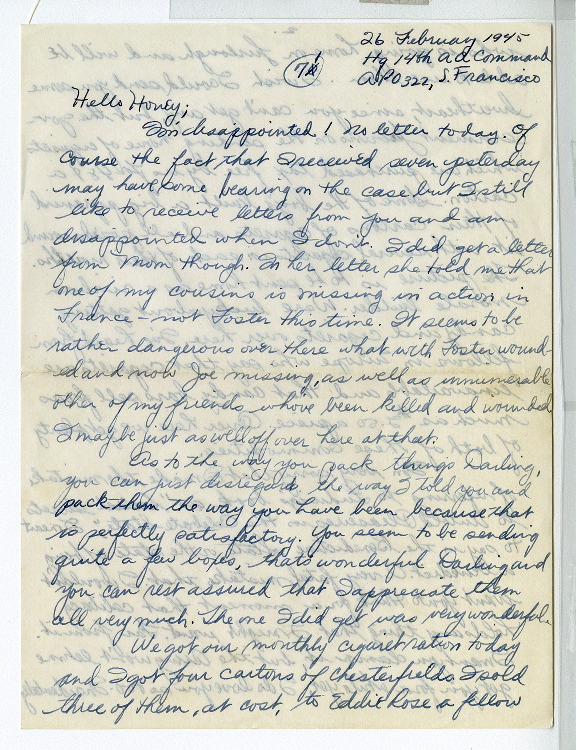 26 February 1945
Hq 14th a.a. Command
APO 322, S. Francisco
Hello Honey;
I'm disappointed! No letter today. Of
course the fact that I received seven yesterday
may have some bearing on the case but I still
like to receive letters from you and am
disappointed when I don't. I did get a letter
from Mom though. In her letter she told me that
one of my cousins is missing in action in
France - not Foster this time. It seems to be
rather dangerous over there what with Foster wound-
ed and now Joe missing, as well as innumerable
other of my friends whove been killed and wounded
I may be just as well off over here at that.
As to the way you pack things Darling,
you can just disregard the way I told you and
pack them the way you have been because that
is perfectly satisfactory. You seem to be sending
quite a few boxes, thats wonderful Darling and
you can rest assured that I appreciate them
all very much. The one I did get was very wonderful.
We got our monthly cigaret ration today
and I got four cartons of chesterfields I sold
three of them, at cost, to Eddie Rose a fellow